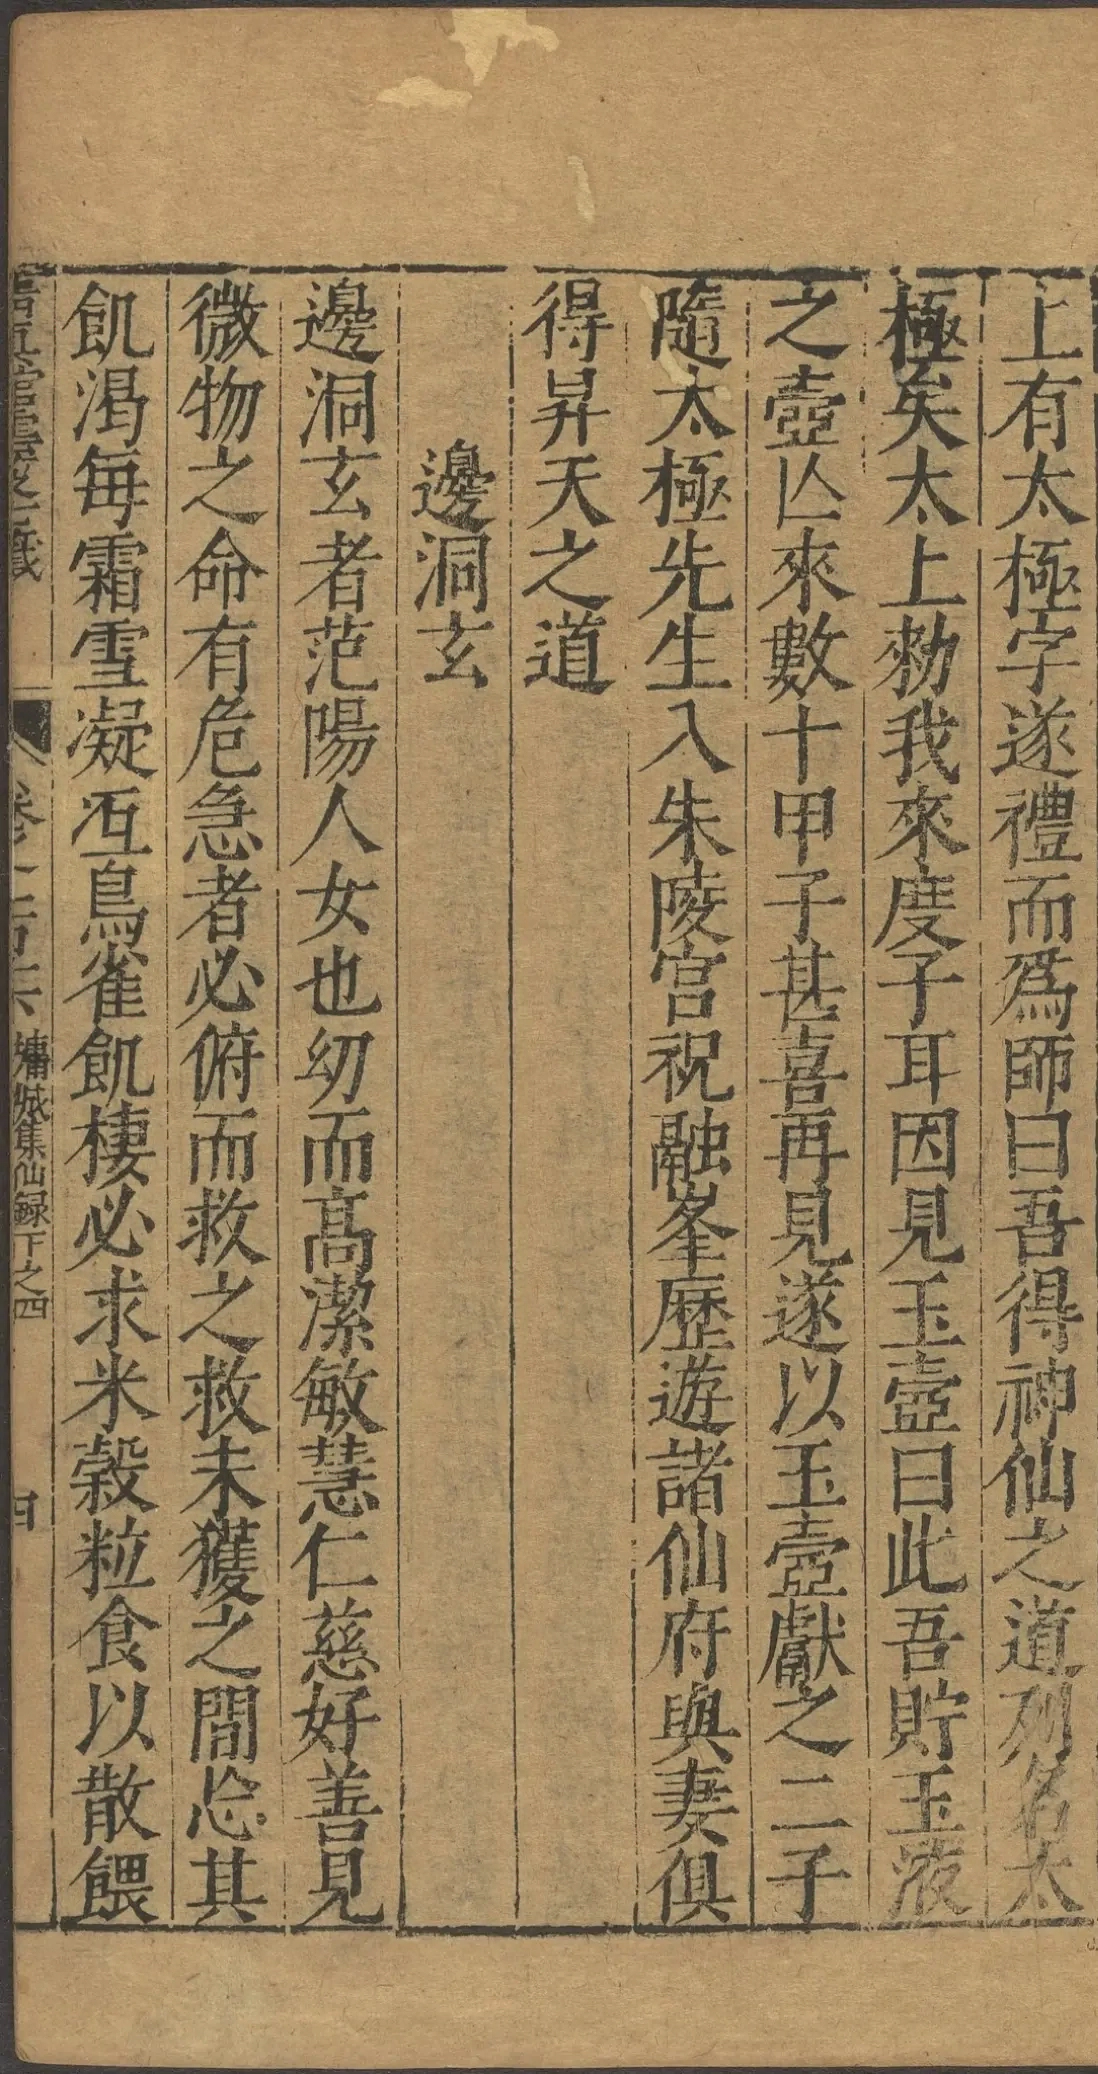 上有太極字遂禮而爲師曰吾得神仙之道列名太
極矣太上勑我來度子耳因見玉壼曰此吾貯玉液
之壺亾來數十甲子甚喜再見遂以玉壺獻之二子
隨太極先生入朱陵宮祝融峯歷遊諸仙府與妻俱
得昇天之道
邊洞玄
邊洞玄者范陽人女也幼而髙潔敏慧仁慈好善見
微物之命有危急者必俯而救之救未獲之間忘其
飢渴每霜雪凝沍鳥雀飢棲必求米穀粒食以散餵
墉城集仙録下之四
四